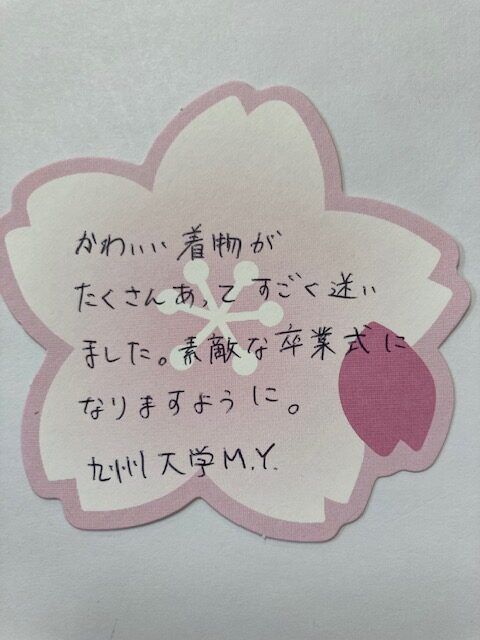 かわいい着物が
たくさんあってすごく迷い
ました。素敵な卒業式に
なりますように。
九州大学M.Y.